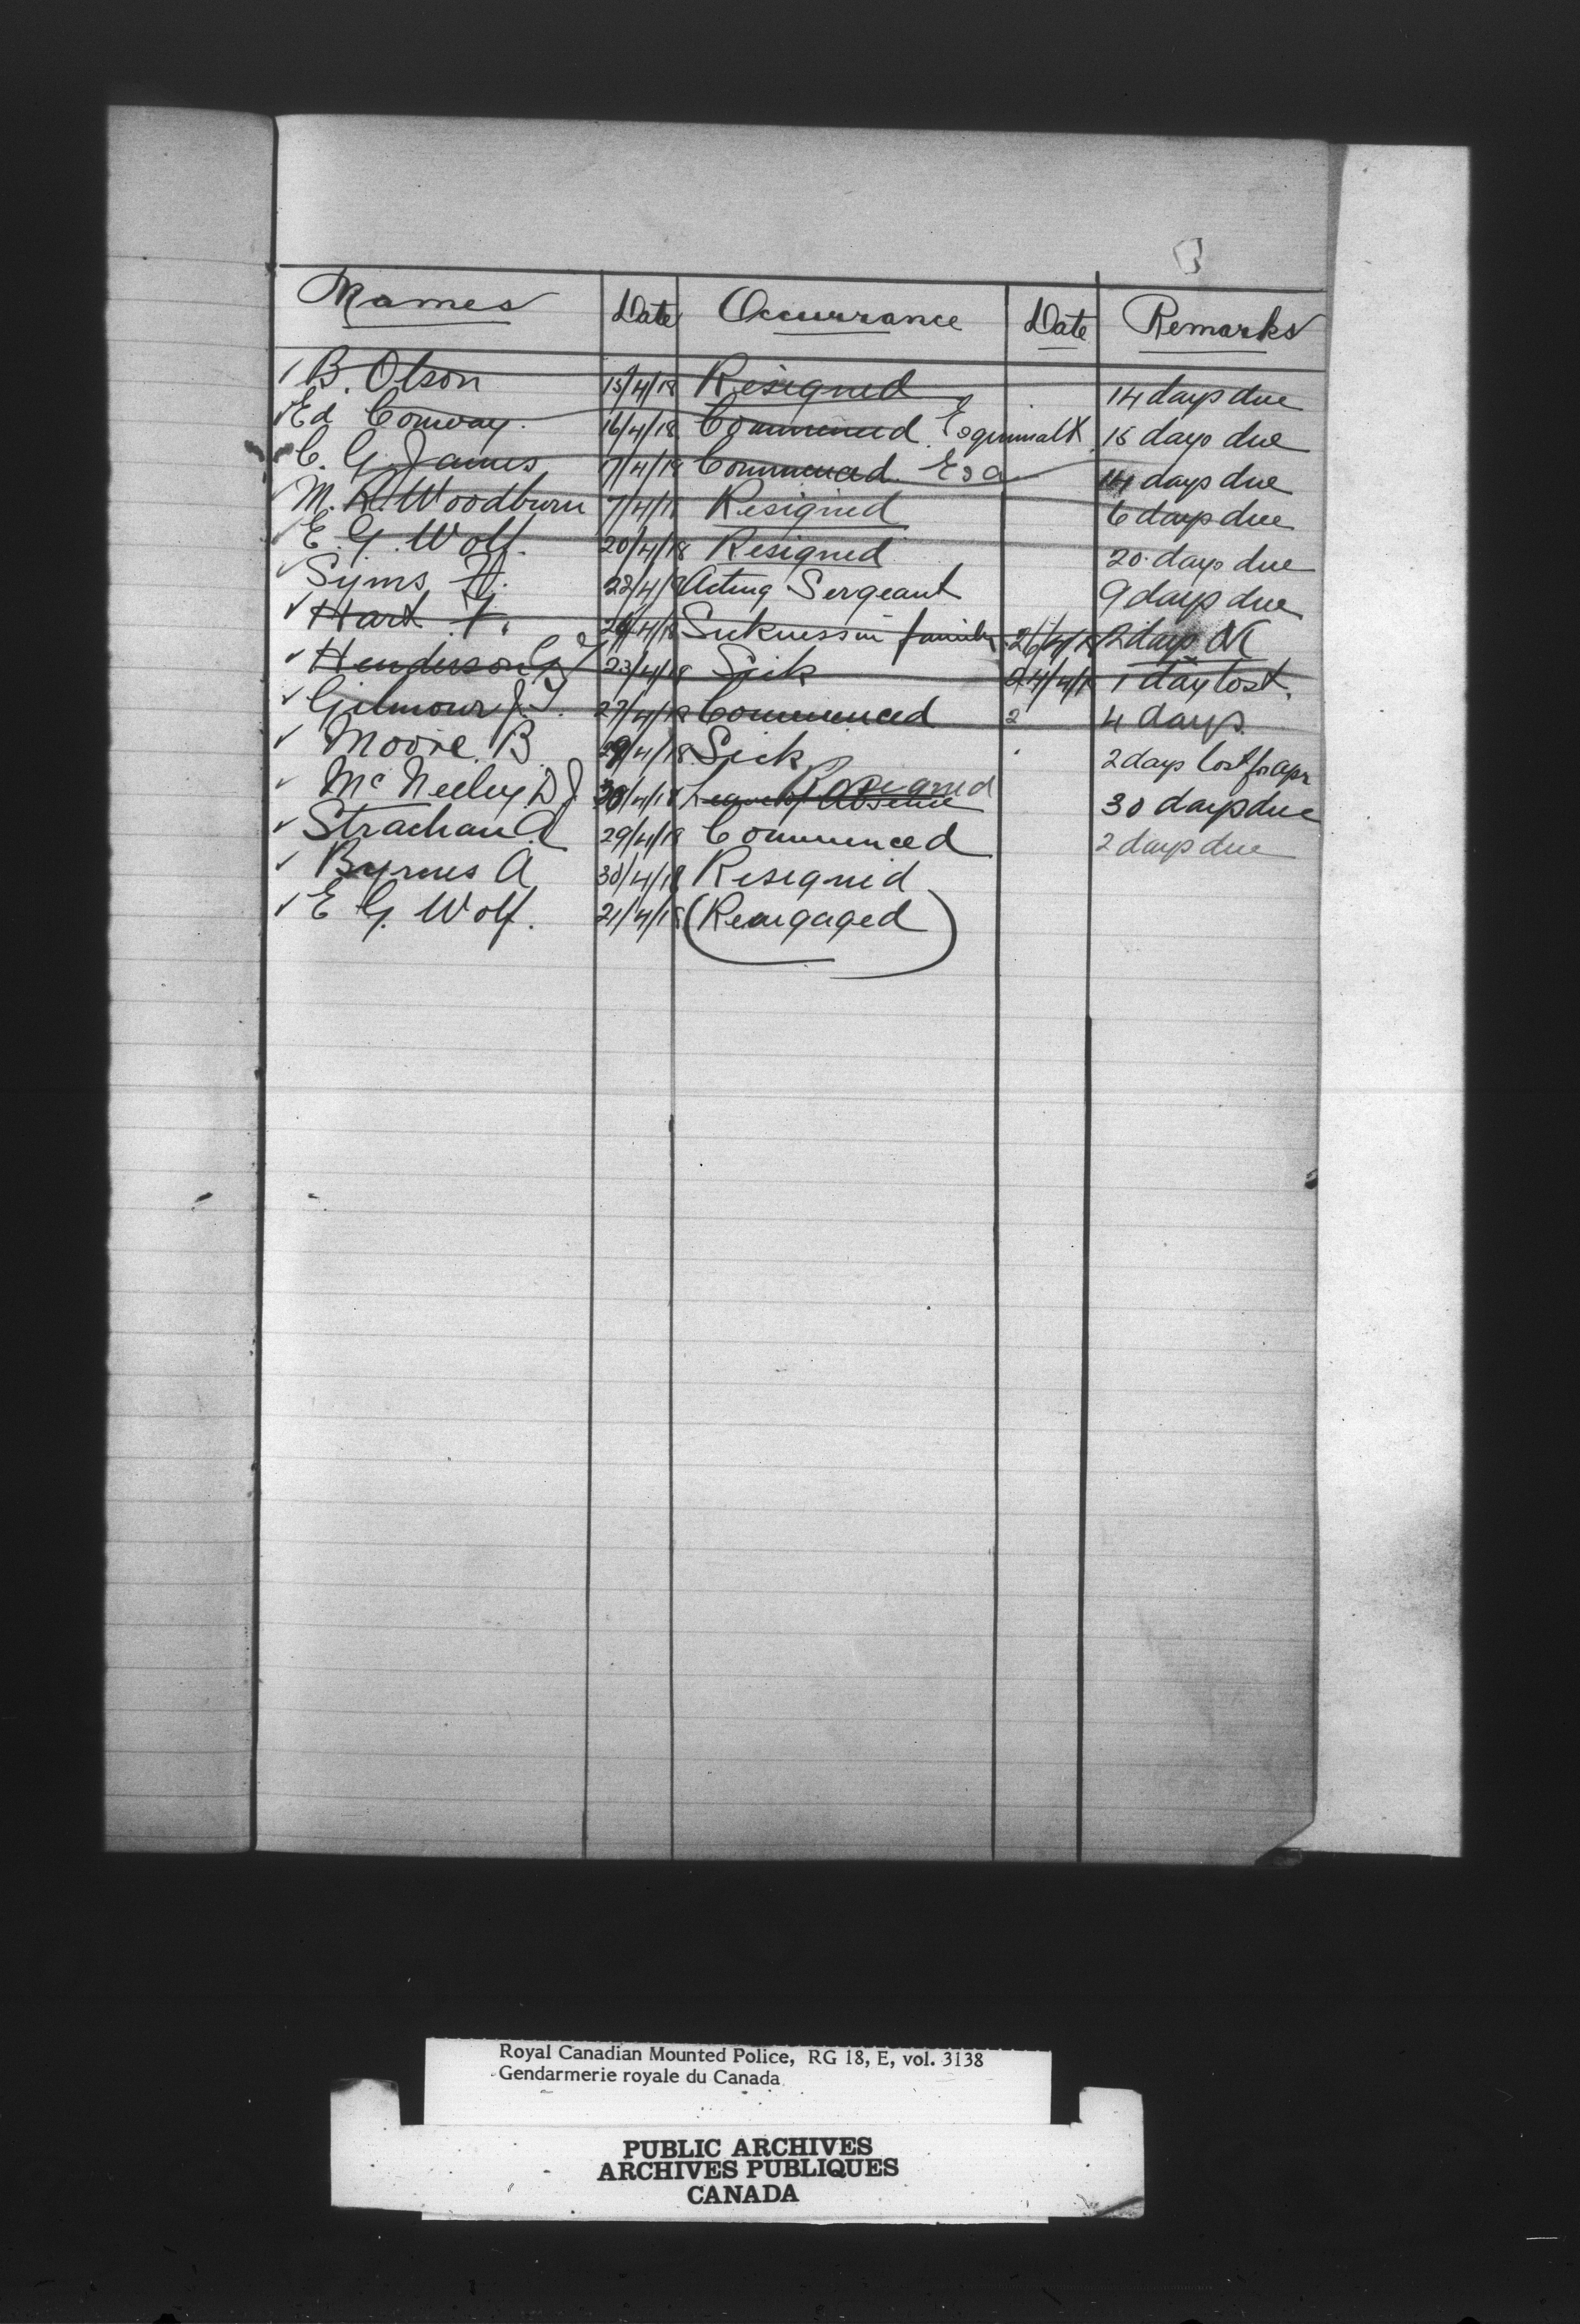 Names Date Occurrance Date Remarks
✓ B. Olson 15/4/18 Resigned 14 days due
✓ Ed Conway. 16/4/18 Commenced Esquimalt 15 days due
C. G. James 17/4/18 Commenced Esq 14 days due
M. R. Woodburn 7/4/18 Resigned 6 days due
✓ E. G. Wolf. 20/4/18 Resigned 20 days due
✓ Syms H. 22/4/18 Acting Sergeant 9 days due
✓ Hart F. 24/4/18 Sickness in family 26/4/18 2 days
✓ Henderson 23/4/18 Sick 24/4/18 1 day lost.
✓ Gilmour J. T. 27/4/18 Commenced 2 4 days
✓ Moore B. 29/4/18 Sick 2 days lost for Apr
✓ McNeeley D J 30/4/18 Leave of Absence Resigned 30 days due
✓ Strachan A 29/4/18 Commenced 2 days due
✓ Byrnes A 30/4/18 Resigned
✓ E G. Wolf. 21/4/18 (Reangaged)
Royal Canadian Mounted Police, RG 18, E, vol. 3138
Gendarmerie royale du Canada
PUBLIC ARCHIVES
ARCHIVES PUBLIQUES
CANADA